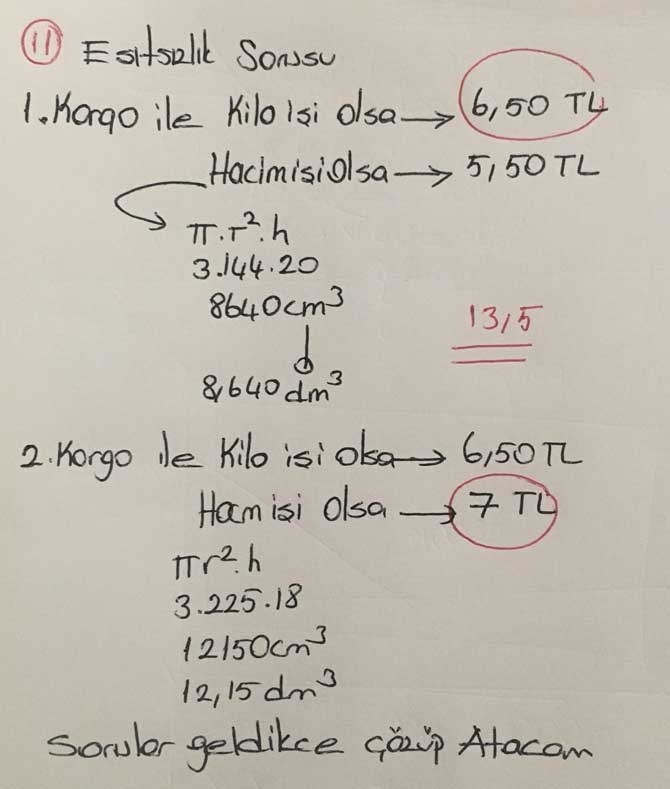 11 Esitsizlik Sorusu
1. Kargo ile Kilo işi olsa → 6,50 TL
Hacim işi Olsa → 5,50 TL
π.r².h
3.144.20
8640cm³
13,5
8,640 dm³
2. Kargo ile Kilo işi olsa → 6,50 TL
Hacm işi Olsa → 7 TL
πr².h
3.225.18
12150cm³
12,15 dm³
Sorular geldikce çözüp Atacam